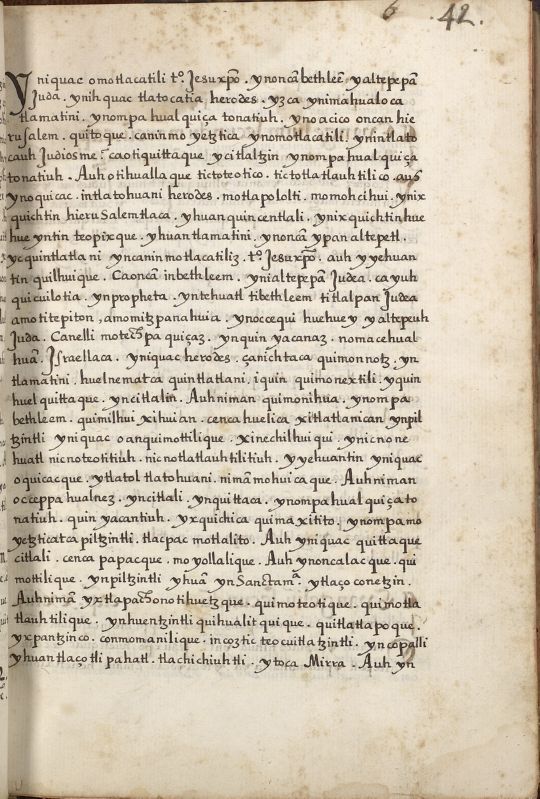 6 42.
Yniquac omotlacatili tº. Jesuxp̃o. ynoncã bethleẽ yaltepepã
Juda. ynihquac tlatocatia herodes. yzca ynimahualoca
tlamatini. ynompa hualquiça tonatiuh. ynoacico oncan hie
rusalem. quitoque. caninmo yetztica ynomotlacatili. ynintlato
cauh Judiosme. ca otiquittaque ycitlaltzin ynompa hualquiça
tonatiuh. Auh otihuallaque tictoteotico. tictotlatlauhtilico. auh
ynoquicac. intlatohuani herodes. motlapololti. momohcihui. ynix
quichtin hierusalemtlaca. yhuan quincentlali. ynixquichtin hue
hueyntin teopixque. yhuan tlamatini. ynoncã ypan altepetl.
ycquintlatlani yncaninmotlacatiliz. tº. Jesuxp̃o. auh yyehuan
tin quilhuique. Caoncã inbethleem. ynialtepepã Judea. cayuh
quicuilotia. ynpropheta. yntehuatl tibethleem titlalpan Judea
amotitepiton, amomitzpanahuia. ynoccequi huehuey yaltepeuh
Juda. Canelli motechpa quiçaz. ynquin yacanaz. nomacehual
huã. Israellaca. yniquac herodes. çanichtaca quimonnotz. yn
tlamatini. huelnematca quintlatlani. iquin quimonextili. yquin
huelquittaque. yncitlalin. Auhniman quimonihua. ynompa
bethleem. quimilhui xihuian. cenca huelica xitlatlanican ynpil
tzintli yniquac oanquimottilique. xinechilhuiqui. ynicnone
huatl nicnoteotitiuh. nicnotlatlauhtilitiuh. yyehuantin yniquac
oquicacque. ytlatol tlatohuani. nimã mohuicaque. Auhniman
occeppa hualnez. yncitlali. ynquittaca. ynompa hualquiçato
natiuh. quin yacantiuh. yxquichica quimaxitito. ynompamo
yetzticatca piltzintli. tlacpac motlalito. Auh yniquac quittaque
citlali. cenca papacque. moyollalique. Auh ynoncalacque. qui
mottilique. ynpiltzintli yhuã ynSanctamª. ytlaço conetzin.
Auhnimã yxtlapachonotihuetzque. quimoteotique. quimotla
tlauhtilique. ynhuentzintli quihualitquique. quitlatlapoque.
yxpantzinco. conmomanilique. incoztic teocuitlatzintli. yncopalli
yhuan tlaçotli pahatl. tlachichiuhtli. ytoca Mirra. Auh yn